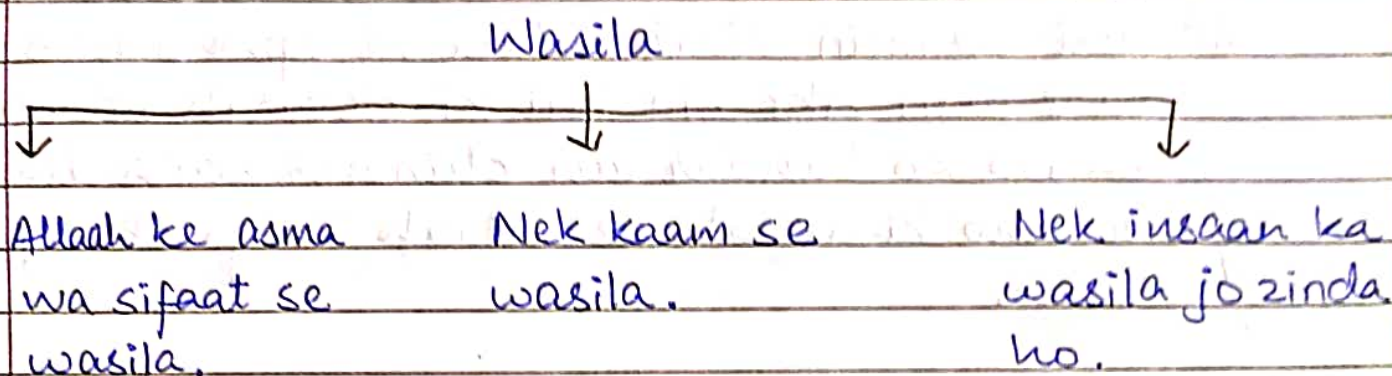 Wasila
Allaah ke asma
wa sifaat se
wasila.
Nek kaam se
wasila.
Nek insaan ka
wasila jo zinda
ho.